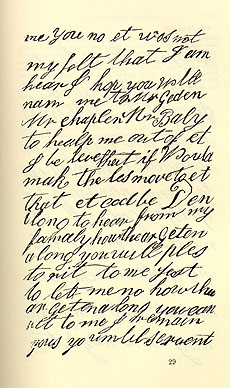 me you no et was not
my folt that I am
hear I hop you will
nam me to Mr Geden
Mr chaplen Mr Baly
to healp me out of et
I be leve that if Would
mak the les move to et
that et cod be Den
long to hear from my
famaly how the ar geten
along you will ples
to rit to me jest
to let me no how the
ar geten along you can
rit to me I remain
yours your umbl servent
29